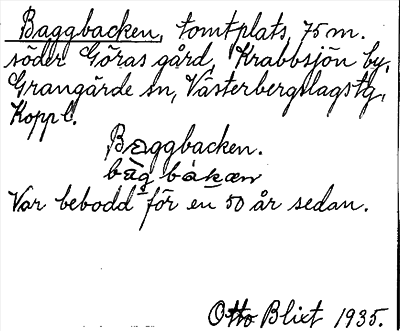 Baggbacken, tomtplats, 75 m.
söder Göras gård, Krabbsjön by,
Grangärde sn, Västerbergslags tg,
Kopp l.
Baggbacken.
bàg bàkæn
Var bebodd för en 50 år sedan.
Otto Blixt 1935.